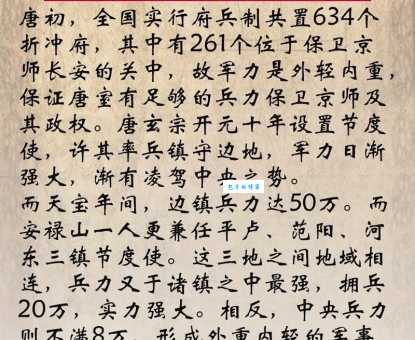 唐初，全国实行府兵制共置634个
折冲府，其中有261个位于保卫京
师长安的关中，故军力是外轻内重，
保证唐室有足够的兵力保卫京师及
其政权。唐玄宗开元十年设置节度
使，许其率兵镇守边地，军力日渐
强大，渐有凌驾中央之势。
而天宝年间，边镇兵力达50万。而
安禄山一人更兼任平卢、范阳、河
东三镇节度使。这三地之间地域相
连，兵力又于诸镇之中最强，拥兵
20万，实力强大。相反，中央兵力
则不满8万，形成外重内轻的军事